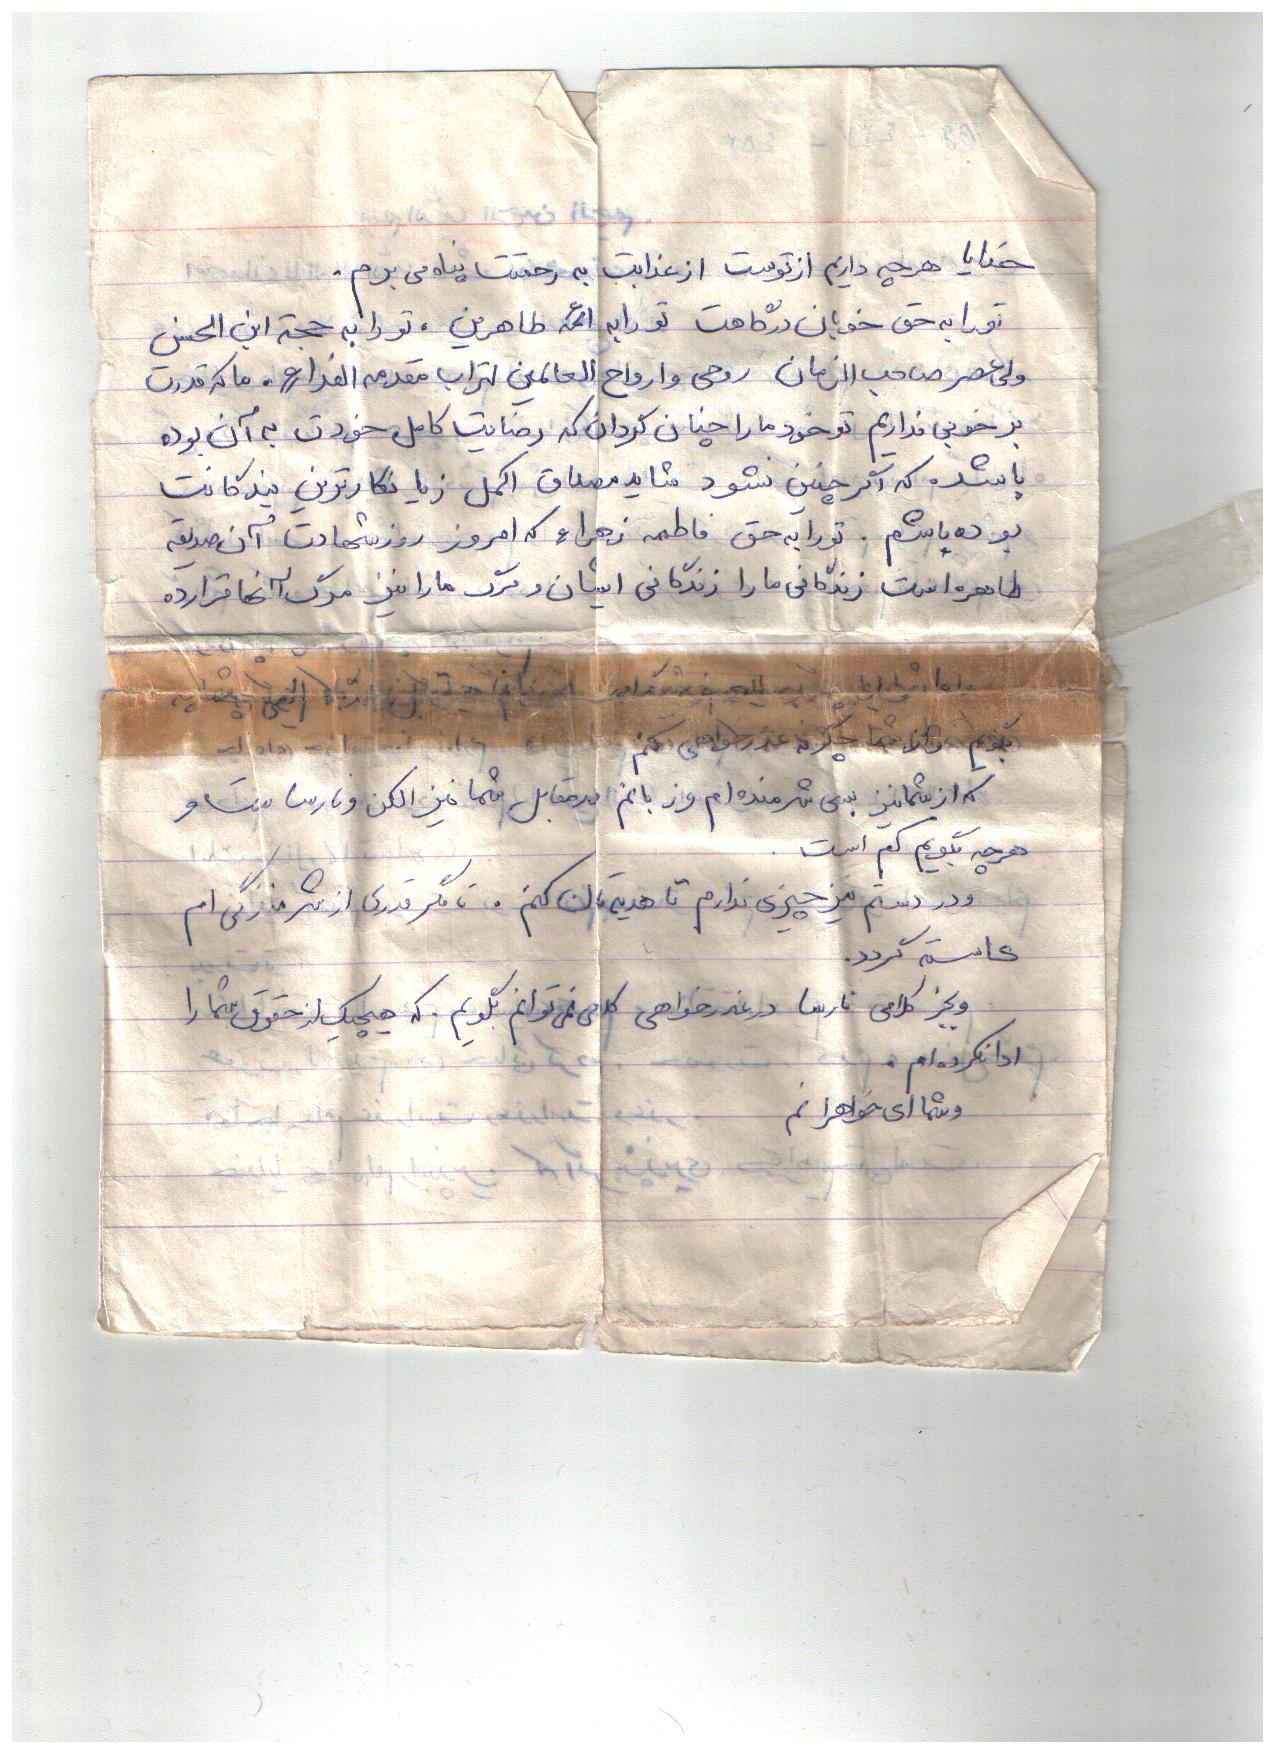 خدایا هرچه داریم از توست از عذابت به رحمتت پناه می بریم.
تو را به حق خوبان درگاهت تو را به ائمه طاهرین. تو را به حجة ابن الحسن
ولی عصر صاحب الزمان روحی و ارواح العالمین لتراب مقدمه الفداء. ما که قدرت
بر خوبی نداریم تو خود ما را چنان گردان که رضایت کامل خودت به آن بوده
باشد. که اگر چنین نشود شاید مصداق اکمل زیانکارترین بندگانت
بوده باشم. تو را به حق فاطمه زهراء که امروز روز شهادت آن صدیقه
طاهره است زندگانی ما را زندگانی ایشان و مرگ ما را نیز مرگ آنها قرار ده
بگویم از شما چگونه عذرخواهی کنم
که از شما نیز بسی شرمنده ام و زبانم در مقابل شما نیز الکن و نارساست و
هرچه بگویم کم است.
و در دستم نیز چیزی ندارم تا هدیه تان کنم. تا مگر قدری از شرمندگی ام
کاسته گردد.
و بجز کلامی نارسا در عذرخواهی کلامی نمی توانم بگویم. که هیچیک از حقوق شما را
ادا نکرده ام.
و شما ای خواهرانم